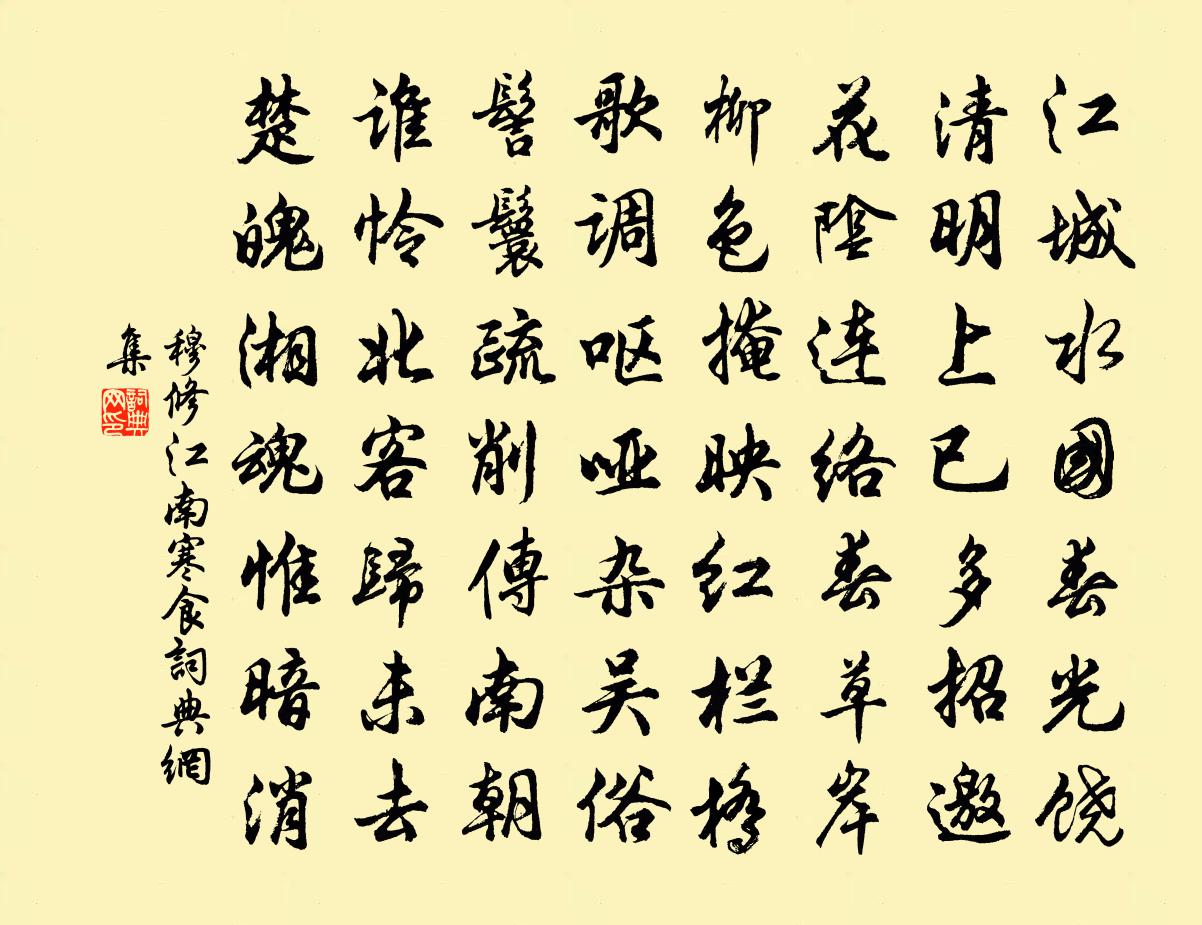 江城水國春光饶
清明上巳多招邀
花陰连络春草岸
柳色掩映红栏橋
歌调呕哑杂吴俗
髻鬟疏削傳南朝
谁怜北客歸未去
楚魄湘魂惟暗消
穆修江南寒食詞典網
集
詞典
网印